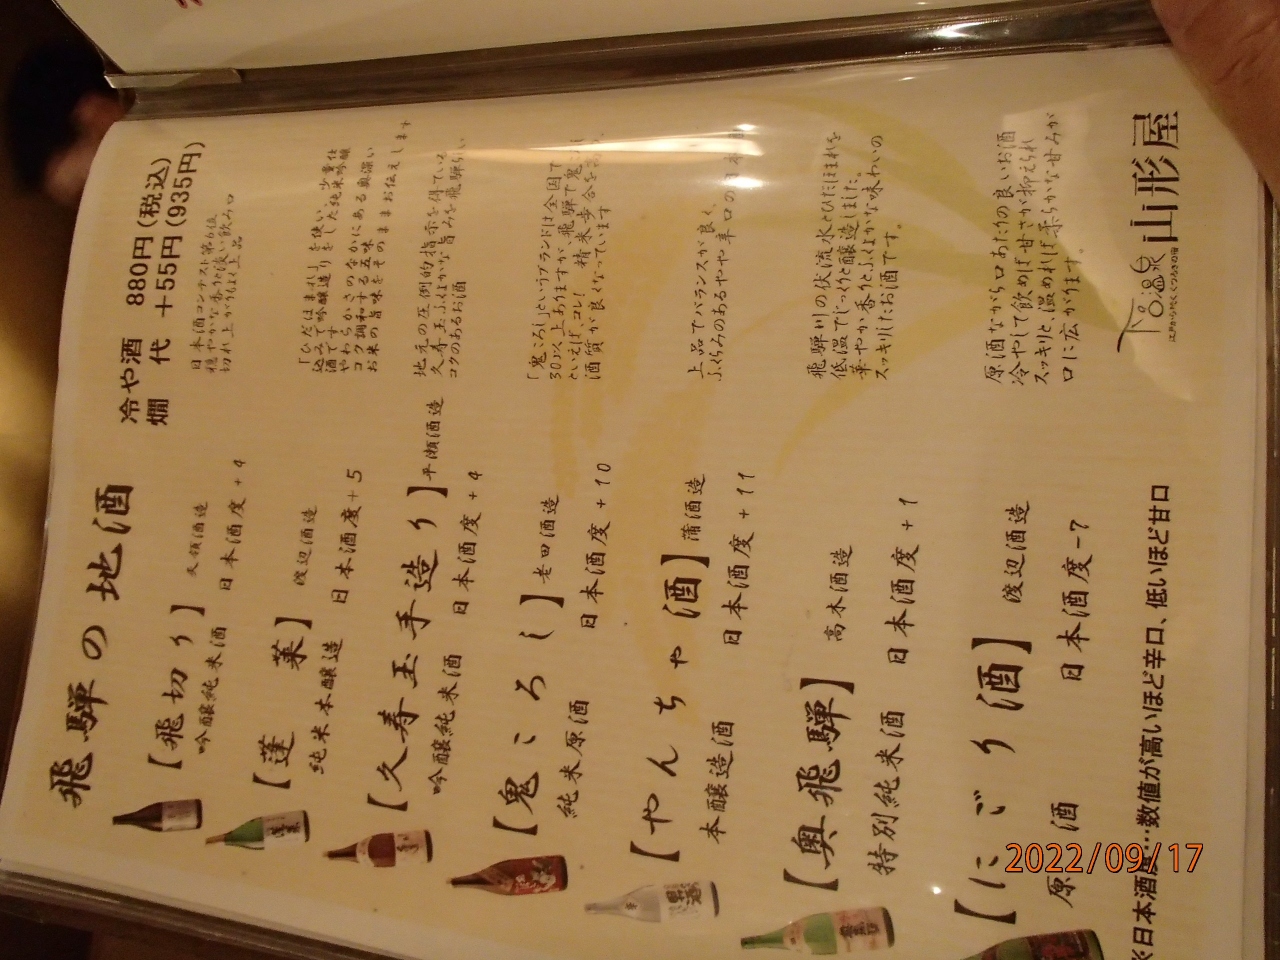 飛騨の地酒
冷や酒 880円(税込)
燗代 +55円(935円)
【飛切り】 久領酒造
吟醸純米酒 日本酒度+4
日本酒コンテスト第6位
穏やかな香りと淡い飲み口
切れ上がりもよく上品
【蓬莱】 渡辺酒造
純米本醸造 日本酒度+5
「ひだほまれ」を使い、少量仕
込みで吟醸造りをした純米吟醸
酒です
やわらかさのなかにある奥深い
コク調和する五味
お米の旨味をそのままお伝えします
【久寿玉手造り】 平瀬酒造
吟醸純米酒 日本酒度+4
地元の圧倒的指示を得ている
久寿玉ふくよかな旨みを飛騨らしい
コクのあるお酒
【鬼ころし】 老田酒造
純米原酒 日本酒度+10
「鬼ころし」というブランドは全国で
30以上ありますが、飛騨で鬼ころし
といえば、コレ! 精米歩合を高め、
酒質が良くなっています
【やんちゃ酒】 蒲酒造
本醸造酒 日本酒度+11
上品でバランスが良く、
ふくらみのあるやや辛口の日本酒
【奥飛騨】 高木酒造
特別純米酒 日本酒度+1
飛騨川の伏流水とひだほまれを
低温でじっくりと醸造しました。
華やか香りとふくよかな味わいの
スッキリしたお酒です。
【にごり酒】 渡辺酒造
原酒 日本酒度-7
原酒ながら口あたりの良いお酒
冷やして飲めば甘さが抑えられ
スッキリと、温めれば柔らかな甘みが
口に広がります。
※日本酒度…数値が高いほど辛口、低いほど甘口
下呂温泉 山形屋
2022/09/17